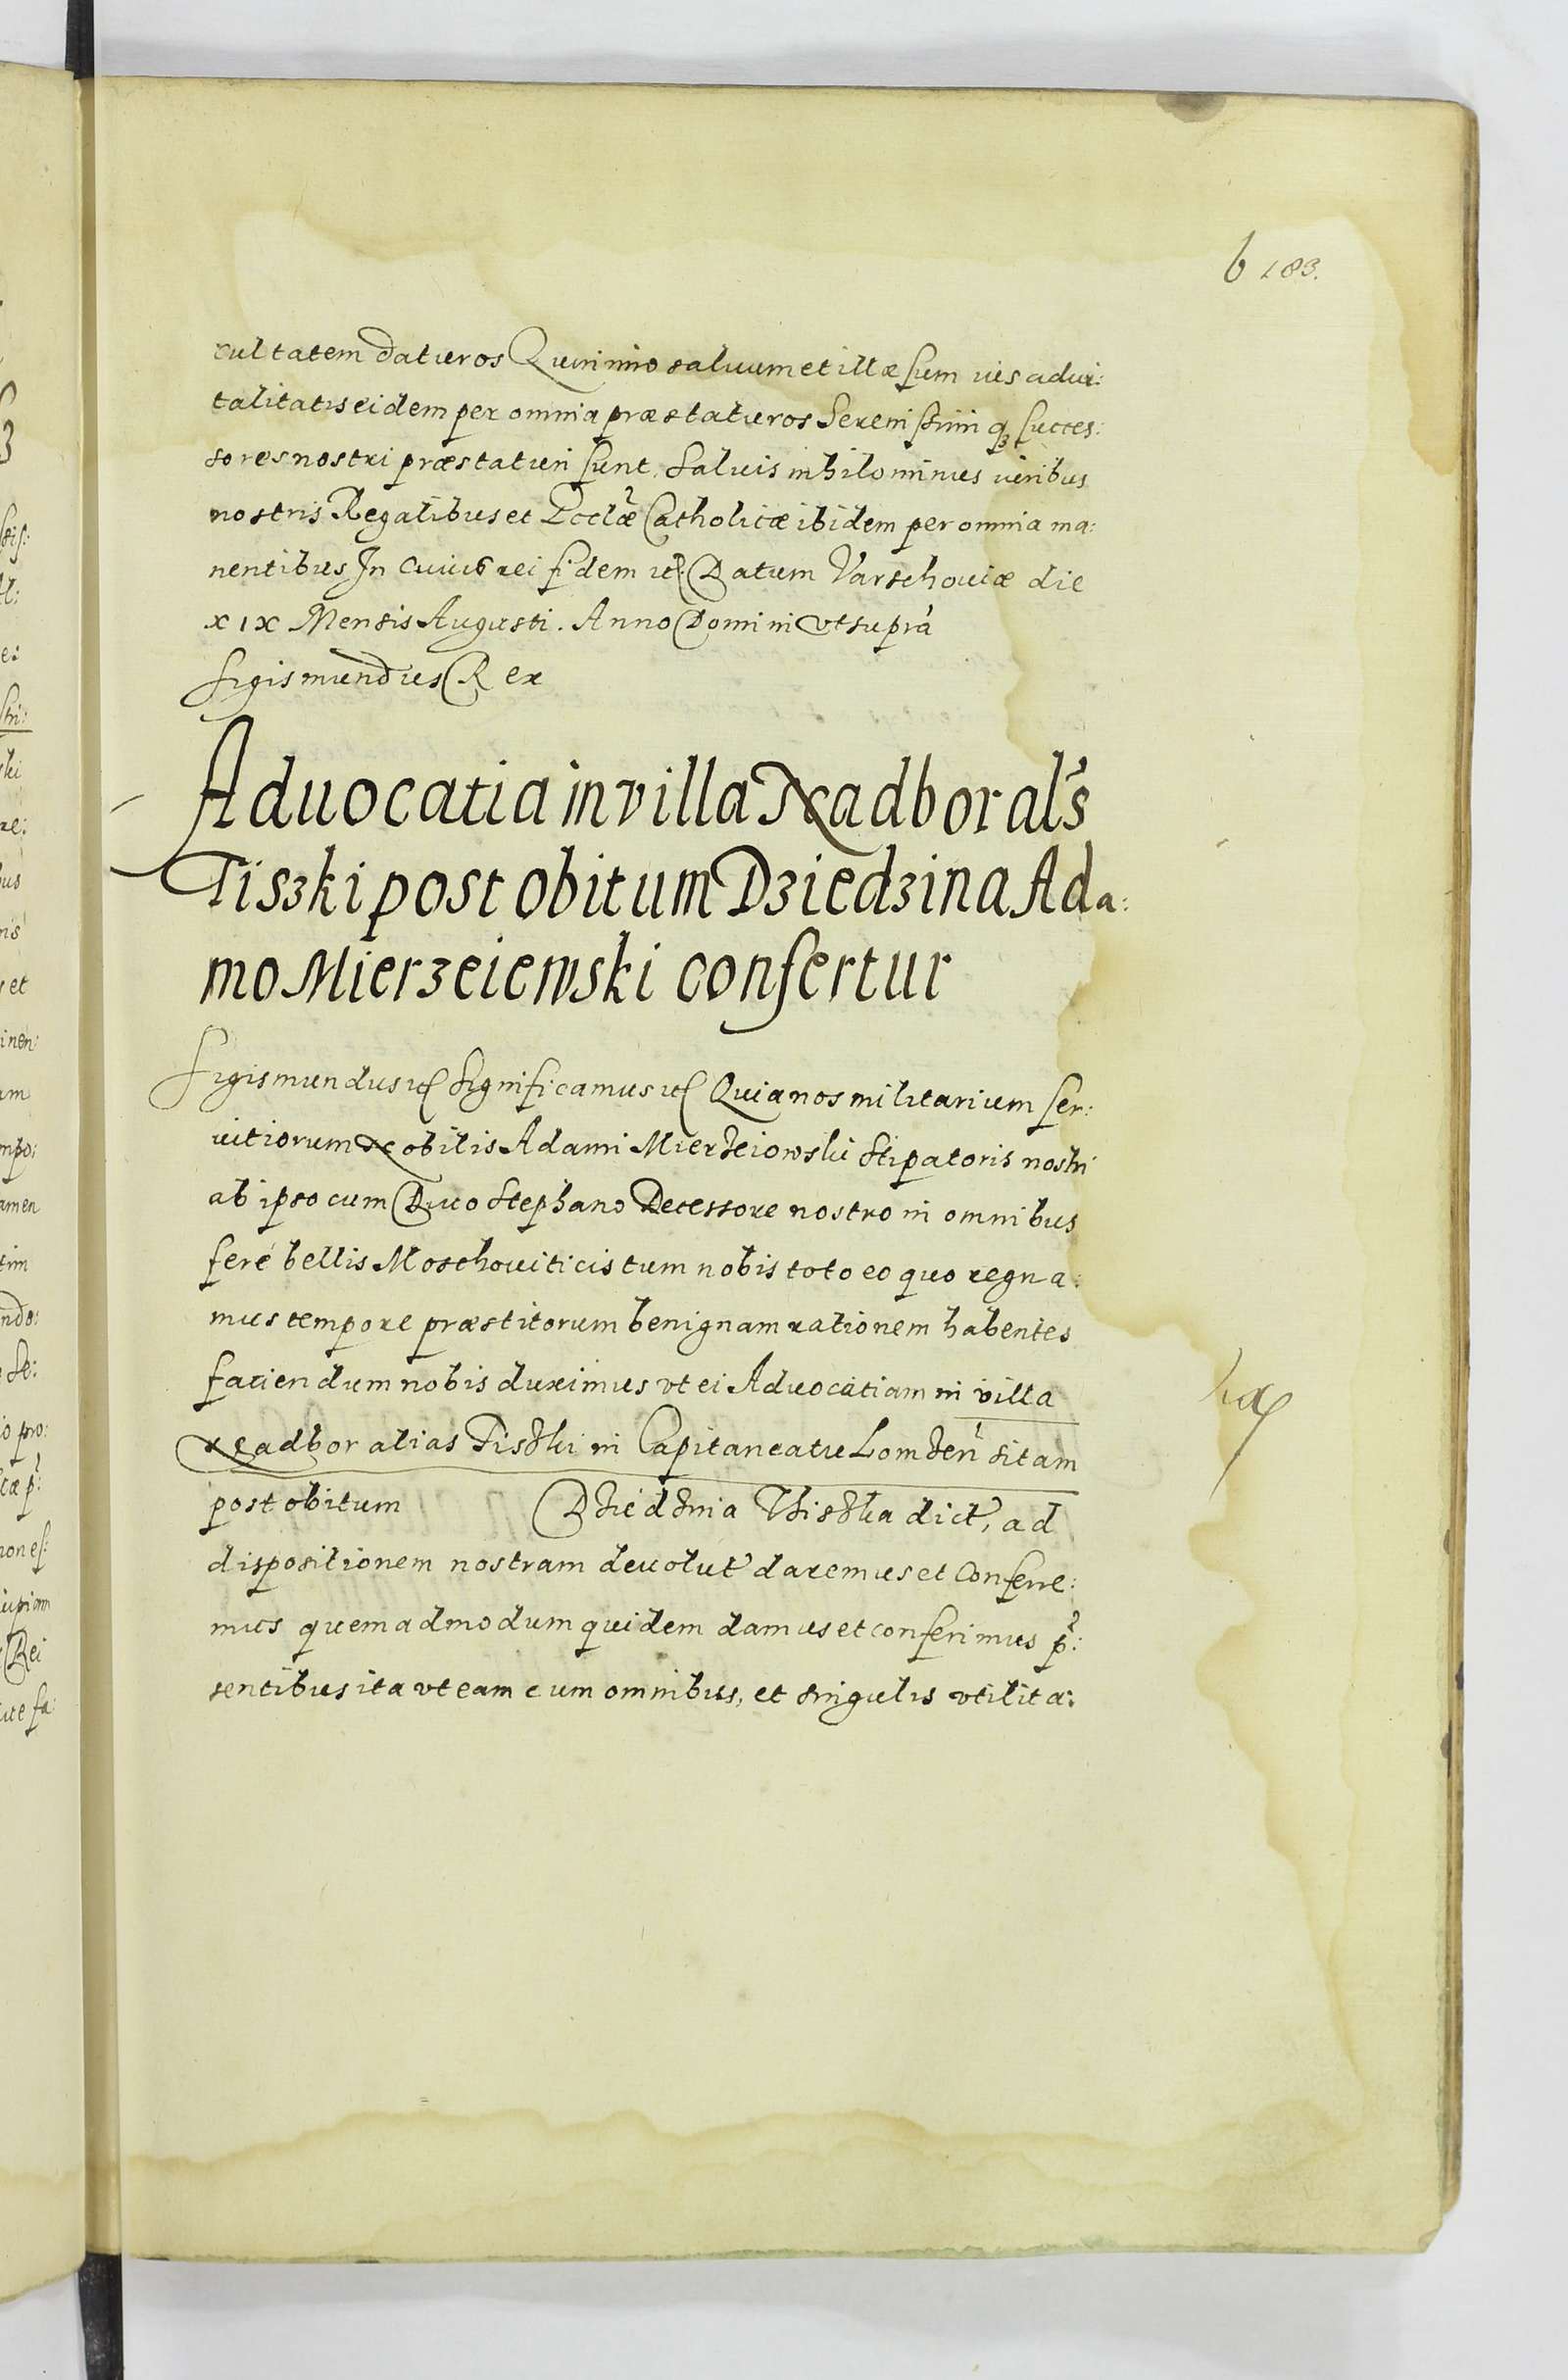 6 183.
cultatem daturos Quinimo saluum et illæsum ius aduí:
talitatis eidem per omnia præstaturos Serenissimiq3 succes:
sores nostri præstaturi sunt. Saluis nihilominus iuribus
nostris Regalibus et Eccl̃æ Catholicæ ibidem per omnia ma:
nentibus In cuius rei fidem etc. Datum Varschouiæ die
xix Mensis Augusti. Anno Domini vt suprà
Sigismundus Rex
Aduocatia in villa Nadbor als
Tiszki post obitum Dziedzina Ada:
mo Mierzeiewski confertur
Sigismundus etc Significamus etc Quia nos militarium ser:
uitiorum Nobilis Adami Mierzeiowski Stipatoris nostri
ab ipso cum Diuo Stephano Decessore nostro in omnibus
ferè bellis Moschouiticis tum nobis toto eo quo regna:
mus tempore præstitorum benignam rationem habentes
faciendum nobis duximus vt ei Aduocatiam in villa
Nadbor alias Tiszki in Capitaneatu Lomzen sitam
post obitum Dziedzina Thiszka dict, ad
dispositionem nostram deuolut daremus et Conferre:
mus quemadmodum quidem damus et conferimus p̃:
sentibus ita vt eam cum omnibus, et singulis vtilita: